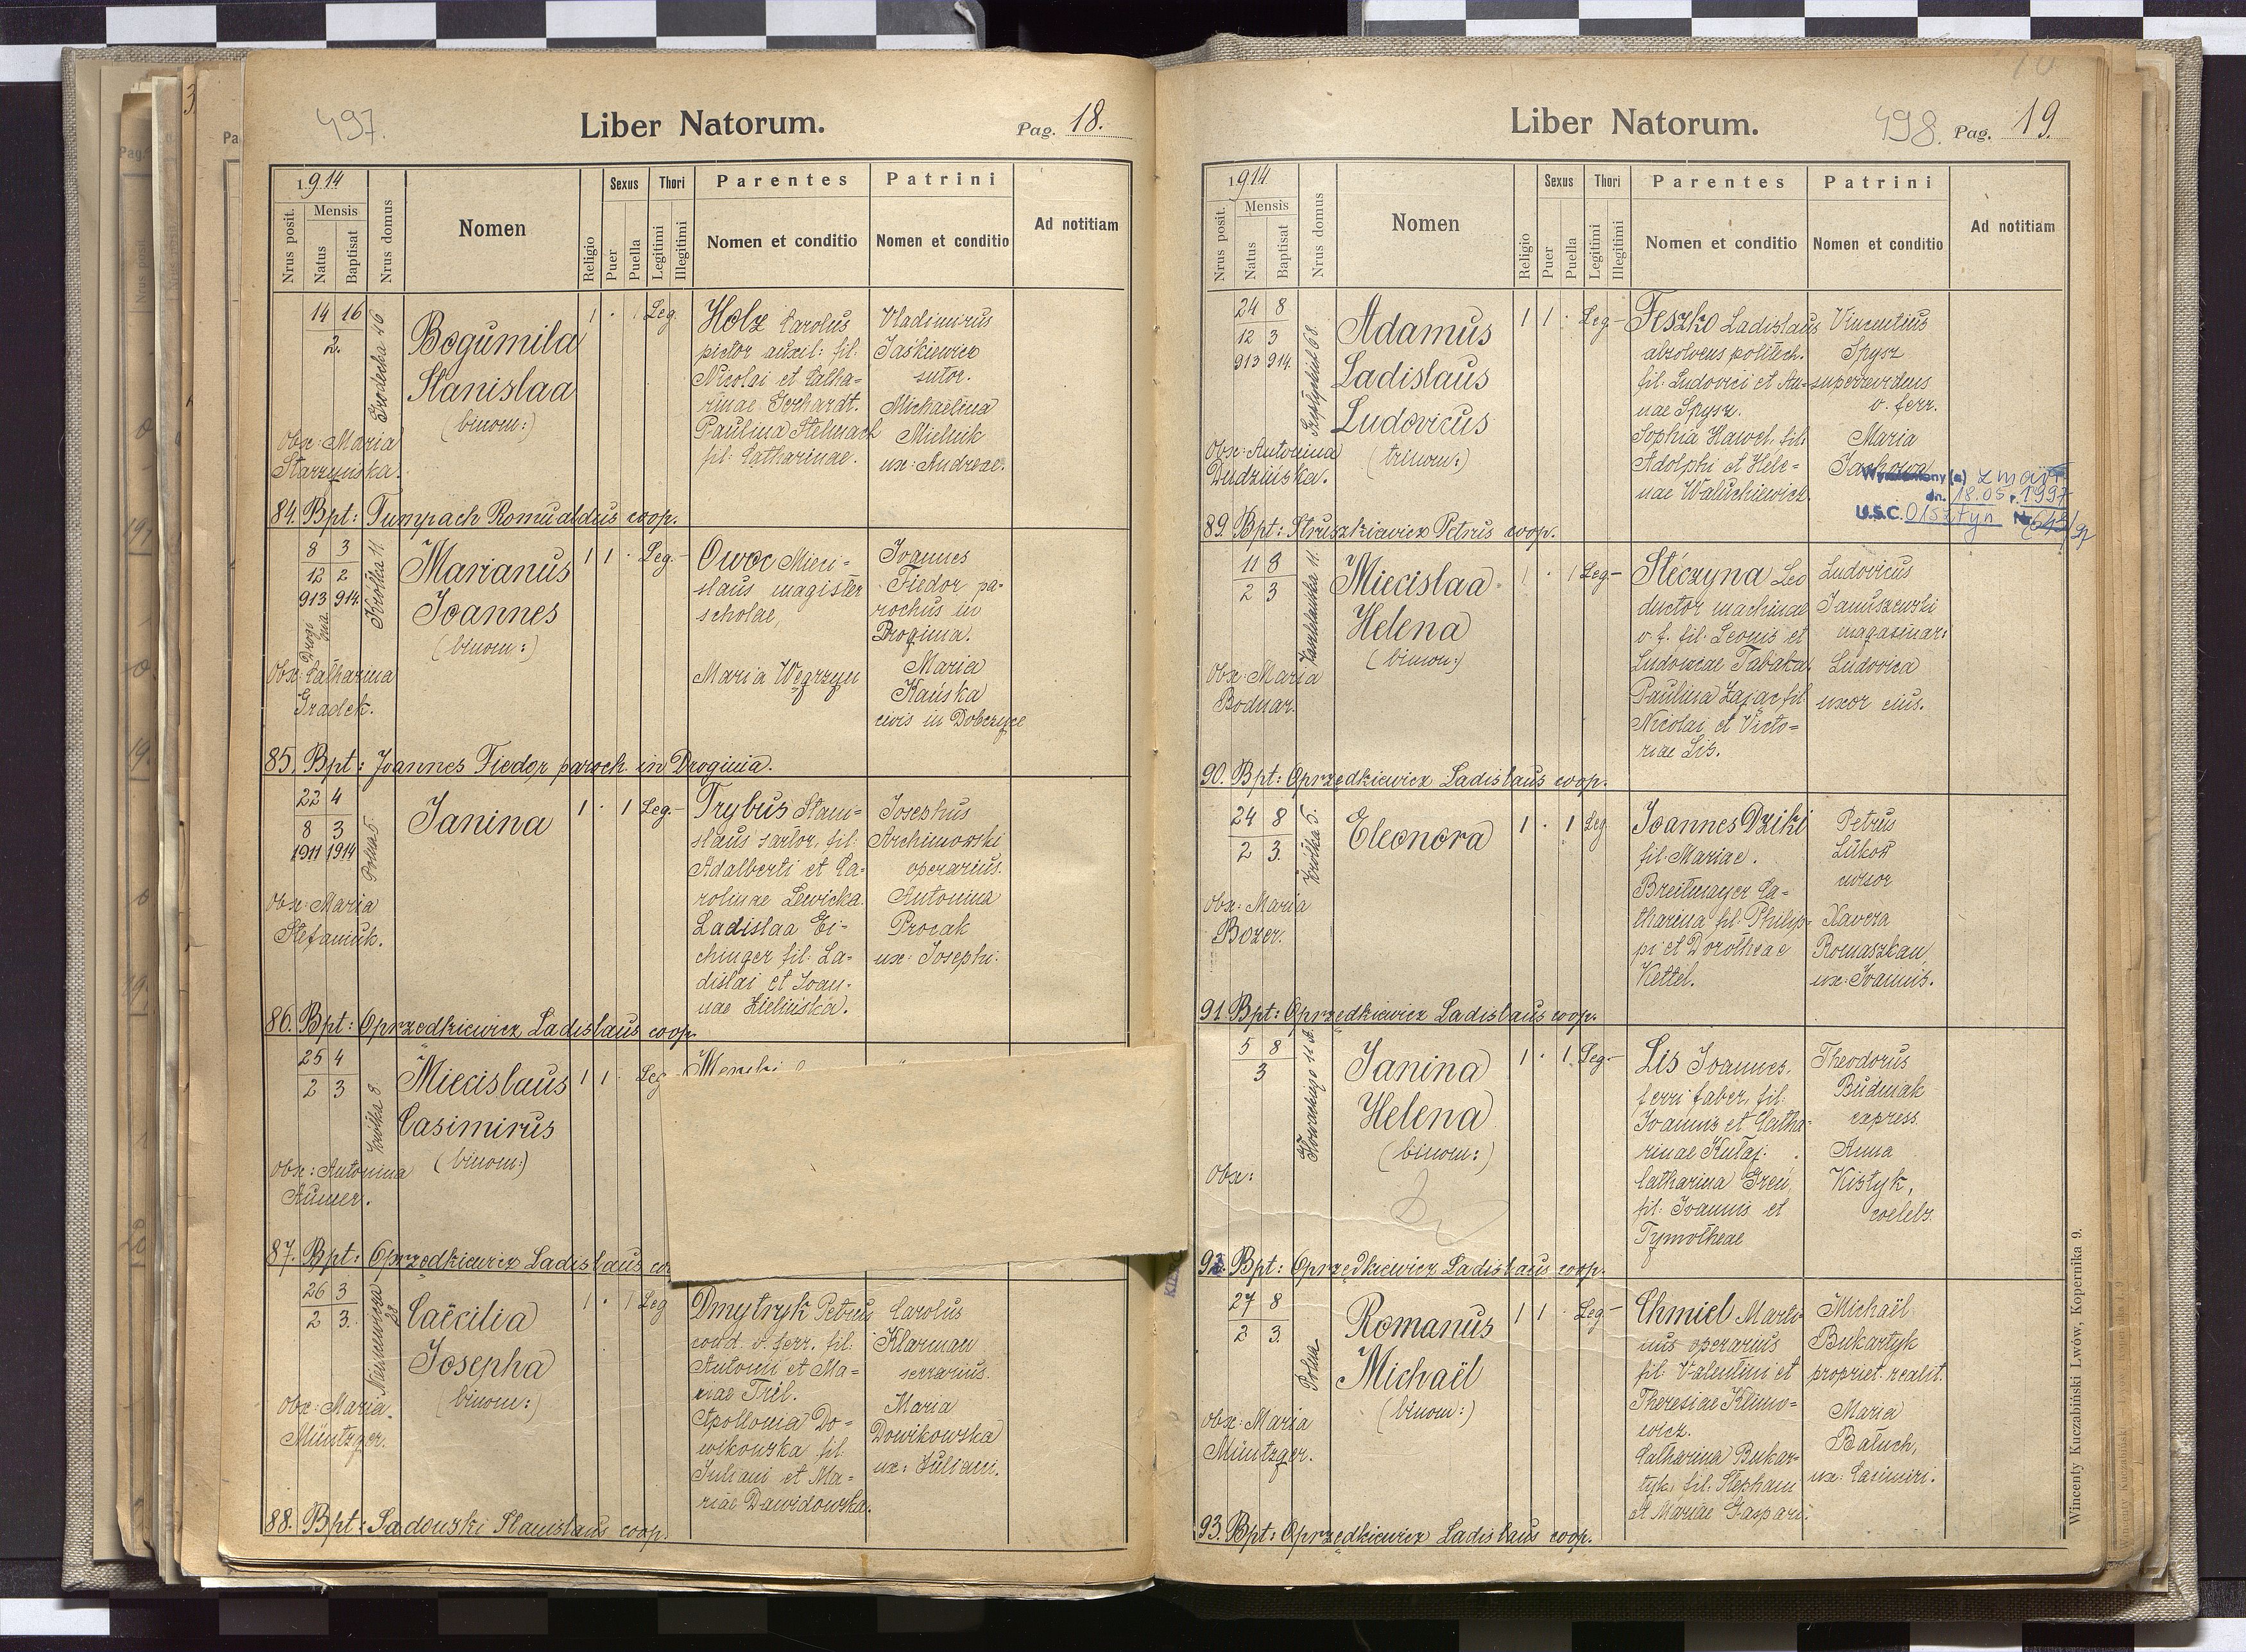 497.
Liber Natorum.
Pag. 18.
1914
Nrus posit.
Mensis
Natus
Baptisat
Nrus domus
Nomen
Religio
Sexus
Puer
Puella
Thori
Legitimi
Illegitimi
Parentes
Nomen et conditio
Patrini
Nomen et conditio
Ad notitiam
14 16
2.
Grodecka 46
Bogumila
Stanislaa
(binom:)
1 · 1 Leg.
Holz Carolus
pictor auxil: fil:
Nicolai et Catha-
rinae Gerhardt.
Paulina Stelmach
fil: Catharinae.
Vladimirus
Jaśkiewicz
sutor.
Michaëlina
Mielnik
ux: Andreae.
Obx: Maria
Starzyńska.
84. Bpt: Tumpach Romualdus coop.
8 3
12 2
913 914
Krótka 11.
Drogi
nia.
Marianus
Joannes
(binom:)
1 1 · Leg.-
Owoc Mieci-
slaus magister
scholae,
Maria Węgrzyn
Joannes
Fiedor pa-
rochus in
Droginia.
Maria
Kańska
civis in Dobczyce
Obx: Catharina
Gradek.
85. Bpt: Joannes Fiedor paroch. in Droginia.
22 4
8 3
1911 1914
Polna 5
Janina
1 · 1 Leg.-
Trybus Stani-
slaus sartor, fil:
Adalberti et Ca-
rolinae Lewicka.
Ladislaa Ei-
chinger fil: La-
dislai et Joan-
nae Zielińska.
Josephus
Archimowski
operarius.
Antonina
Procak
ux: Josephi.
Obx: Maria
Stefaniuk.
86. Bpt: Oprzędkiewicz Ladislaus coop.
25 4
2 3
Krótka 8
Miecislaus
Casimirus
(binom:)
1 1 · Leg
Obx: Antonina
Aumer.
87. Bpt: Oprzędkiewicz Ladislaus co
26 3
2 3.
Niemcewicza
28
Caëcilia
Josepha
(binom:)
1 · 1 Leg
Dmytryk Petrus
cond. v. ferr. fil:
Antonii et Ma-
riae Tril.
Apollonia Do-
wikowska fil.
Juliani et Ma-
riae Dawidowska.
Carolus
Klarman
serrarius.
Maria
Dowikowska
ux: Juliani.
Obx: Maria
Müntzger.
88. Bpt: Sadowski Stanislaus coop.
498.
Liber Natorum.
Pag. 19.
1914
Nrus posit.
Mensis
Natus
Baptisat
Nrus domus
Nomen
Religio
Sexus
Puer
Puella
Thori
Legitimi
Illegitimi
Parentes
Nomen et conditio
Patrini
Nomen et conditio
Ad notitiam
24 8
12 3
913 914.
Adamus
Ladislaus
Ludovicus
(trinom:)
1 1 · Leg-
Feszko Ladislaus
absolvens politech.
fil: Ludovici et An-
nae Spysz.
Sophia Hawel, fil:
Adolphi et Hele-
nae Waluchiewicz
Vincentius
Spysz
superrevidens
v. ferr.
Maria
zmarł
dn. 18.05 r. 1997
U.S.C. Olsztyn
Obx: Antonina
Dudzińska.
89. Bpt: Struszkiewicz Petrus coop.
11 8
2 3
Miecislaa
Helena
(binom:)
1 · 1 Leg-
Stéczyna Leo
ductor machinae
v. f. fil: Leonis et
Ludovicae Tabaka
Paulina Zając fil
Nicolai et Victo-
riae Lis.
Ludovicus
Januszewski
magasinar:
Ludovica
uxor eius.
Obx: Maria
Bodnar.
90. Bpt: Oprzędkiewicz Ladislaus coop.
24 8
2 3.
Krótka 5.
Eleonora
1 · 1 Leg
Joannes Dziki
fil. Mariae.
Breitmayer Ca-
tharina fil. Philip-
pi et Dorotheae
Kettel.
Petrus
cursor
Xavera
Romaszkan,
ux: Joannis.
Obx: Maria
Bozer.
91. Bpt: Oprzędkiewicz Ladislaus coop.
5 8
3
Janina
Helena
(binom:)
1 · 1 Leg-
Lis Joannes,
ferri faber, fil:
Joannis et Catha-
rinae Kutaj.
Catharina Greń,
fil: Joannis et
Tymotheae
Theodorus
Budniak
express.
Anna
Kistyk,
coelebs.
Obx:
92. Bpt: Oprzędkiewicz Ladislaus coop.
27 8
2 3.
Polna
Romanus
Michaël
(binom:)
1 1 · Leg-
Chmiel Marti-
nus operarius
fil: Valentini et
Theresiae Klimo-
wicz.
Catharina Bukar-
tyk, fil. Stephani
et Mariae Gaspari.
Michaël
Bukartyk
propriet. realit.
Maria
Baluch,
ux: Casimiri.
Obx: Maria
Müntzger.
93. Bpt: Oprzędkiewicz Ladislaus coop.
Wincenty Kuczabiński Lwów, Kopernika 9.